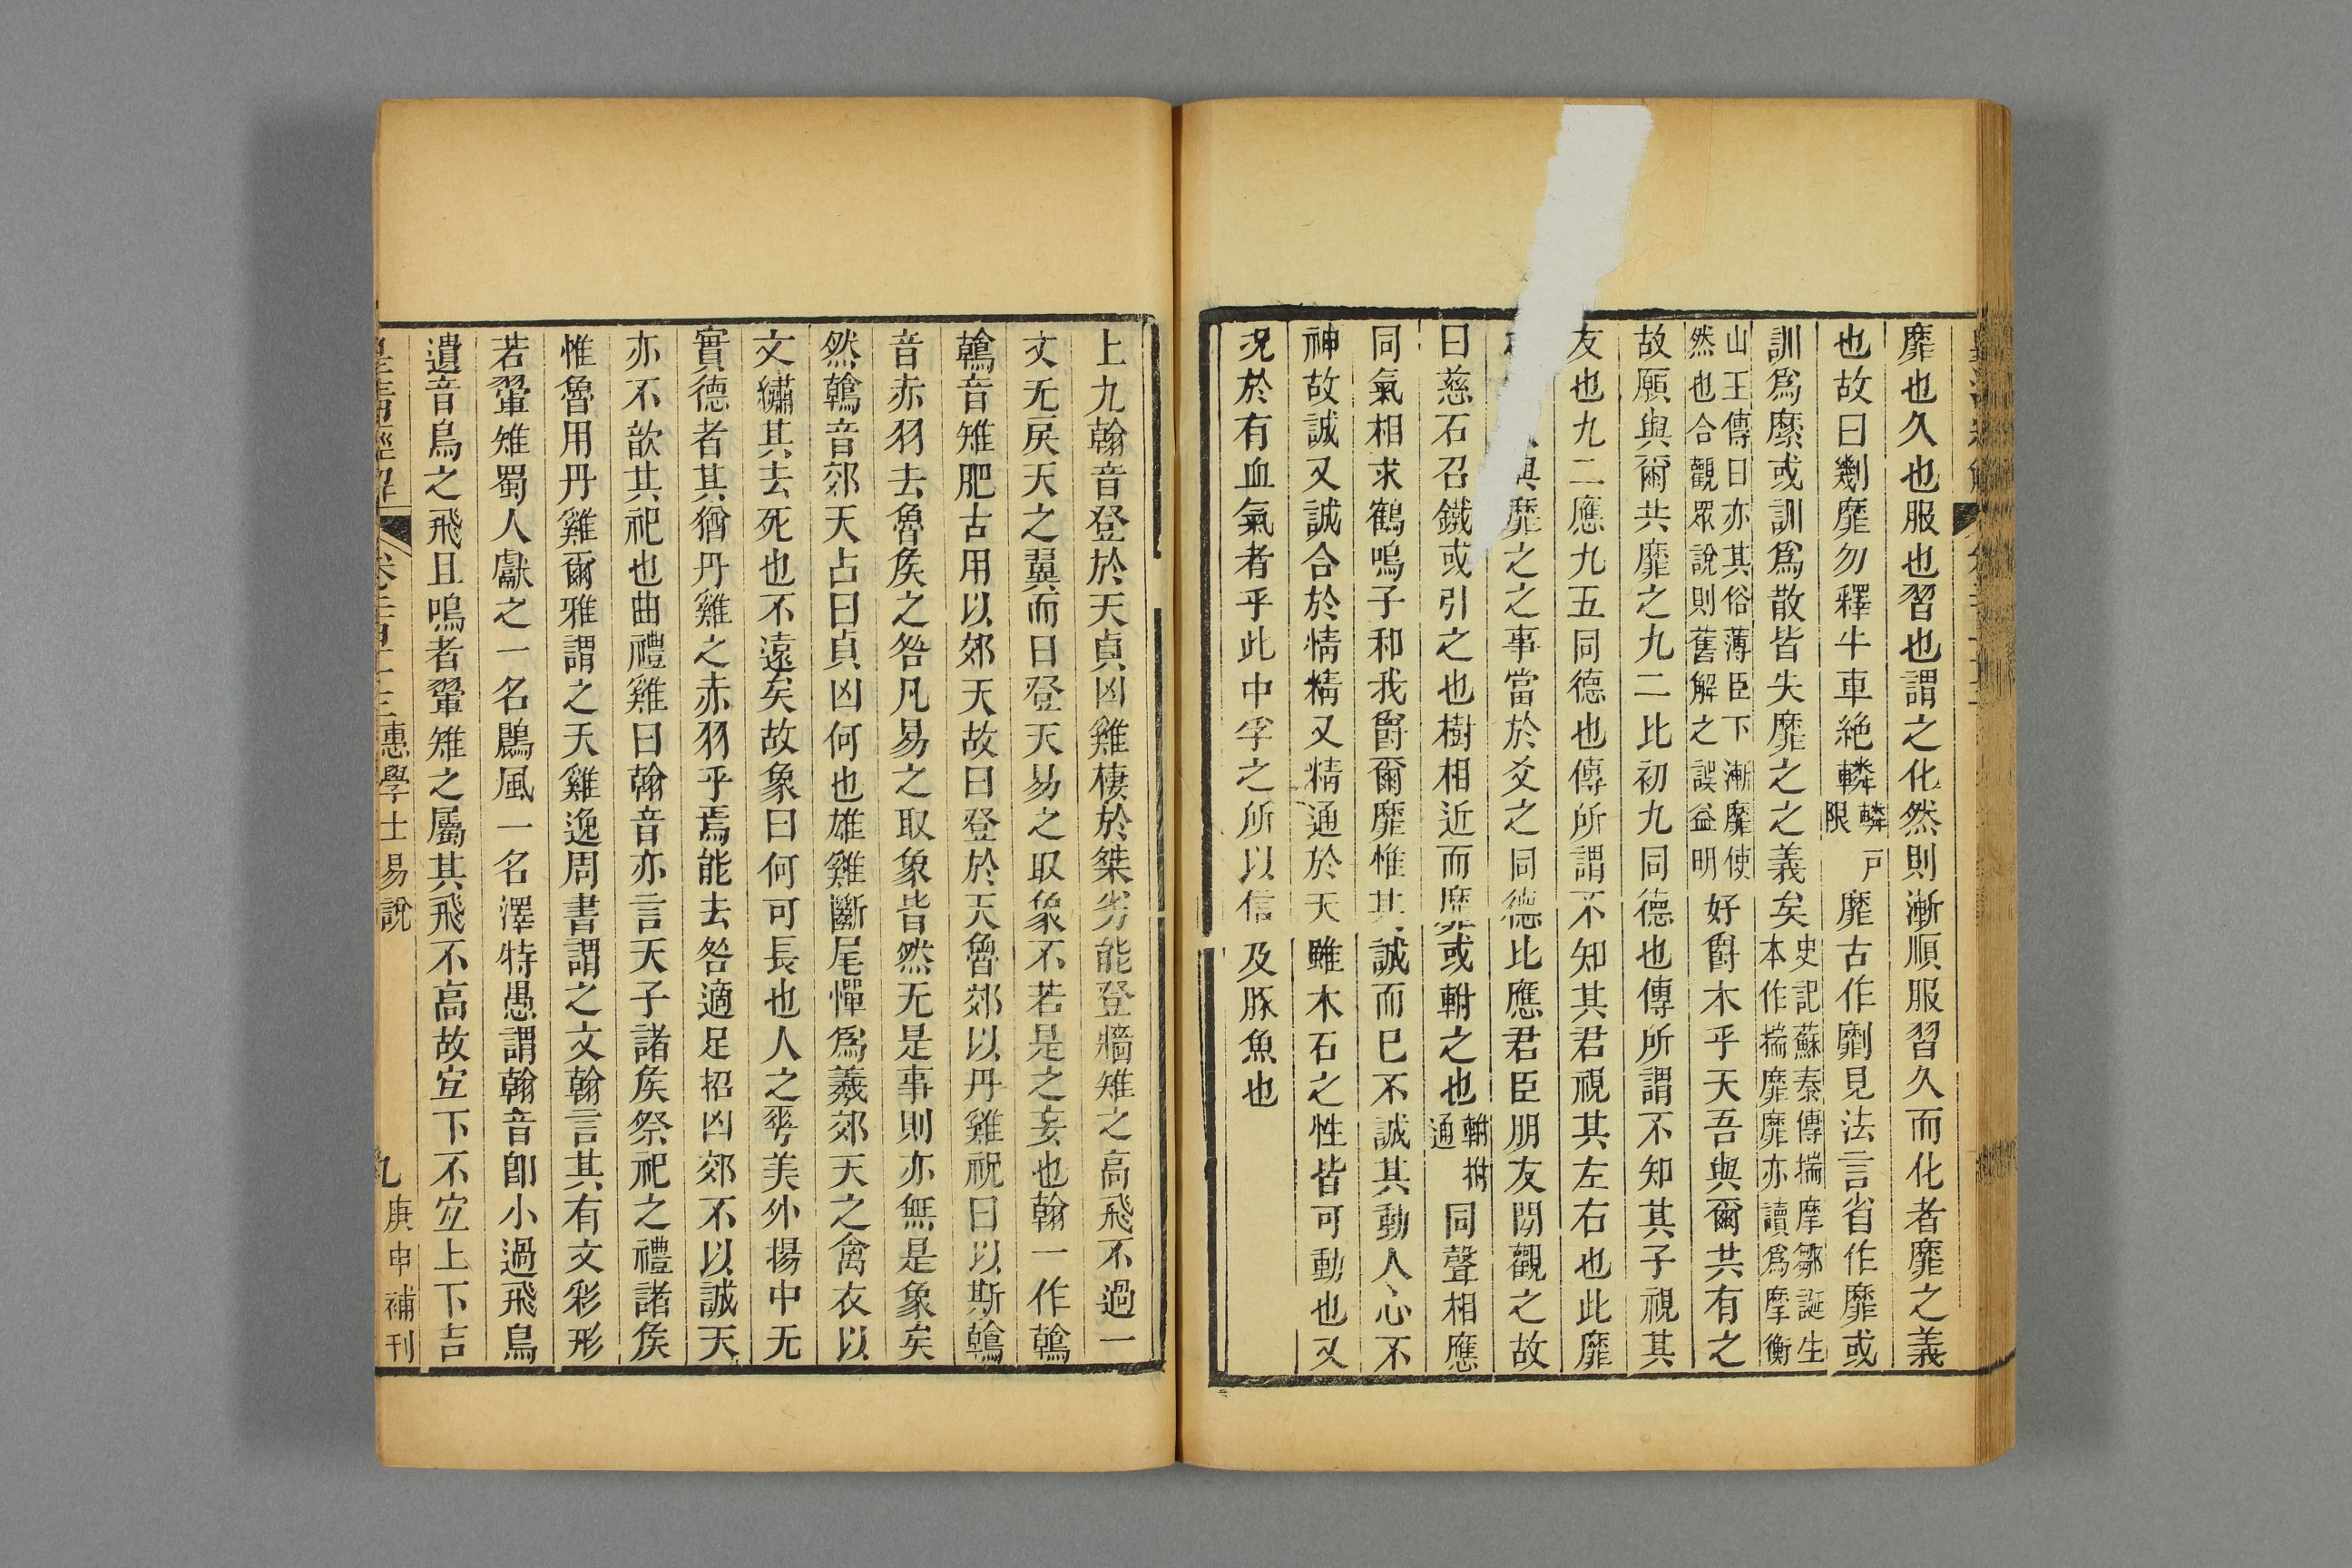 靡也久也服也習也謂之化然則漸順服習久而化者靡之義
也故曰劘靡勿釋牛車絶轔轔限戸靡古作劘見法言省作靡或
訓爲縻或訓爲散皆失靡之之義矣史記蘇秦傳揣摩鄒誕生本作揣靡靡亦讀爲摩衡
山王傳曰亦其俗薄臣下漸靡使然也合觀眾說則舊解之誤益明好爵木乎天吾與爾共有之
故願與爾共靡之九二比初九同德也傳所謂不知其子視其
友也九二應九五同德也傳所謂不知其君視其左右也此靡
與靡之之事當於爻之同德比應君臣朋友閒觀之故
曰慈石召鐵或引之也樹相近而靡或軵之也軵拊通同聲相應
同氣相求鶴鳴子和我爵爾靡惟其誠而巳不誠其動人心不
神故誠又誠合於情精又精通於天雖木石之性皆可動也又
況於有血氣者乎此中孚之所以信及豚魚也
上九翰音登於天貞凶雞棲於桀劣能登牆雉之高飛不過一
丈无戾天之翼而曰登天易之取象不若是之妄也翰一作鶾
鶾音雉肥古用以郊天故曰登於天魯郊以丹雞祝曰以斯鶾
音赤羽去魯矦之咎凡易之取象皆然无是事則亦無是象矣
然鶾音郊天占曰貞凶何也雄雞斷尾憚爲羲郊天之禽衣以
文繡其去死也不遠矣故象曰何可長也人之𠌶美外揚中无
實德者其猶丹雞之赤羽乎焉能去咎適足招凶郊不以誠天
亦不歆其祀也曲禮雞曰翰音亦言天子諸矦祭祀之禮諸矦
惟魯用丹雞爾雅謂之天雞逸周書謂之文翰言其有文彩形
若翬雉蜀人獻之一名鷐風一名澤特愚謂翰音卽小過飛鳥
遺音鳥之飛且鳴者翬雉之屬其飛不高故宜下不宜上下吉
皇清經解 卷二百十三 惠學士易說 九 庚申補刊